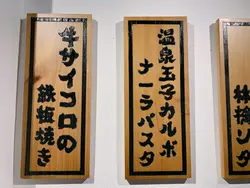 温泉玉子カルボ
ナーラパスタ
牛サイコロの
鉄板焼き